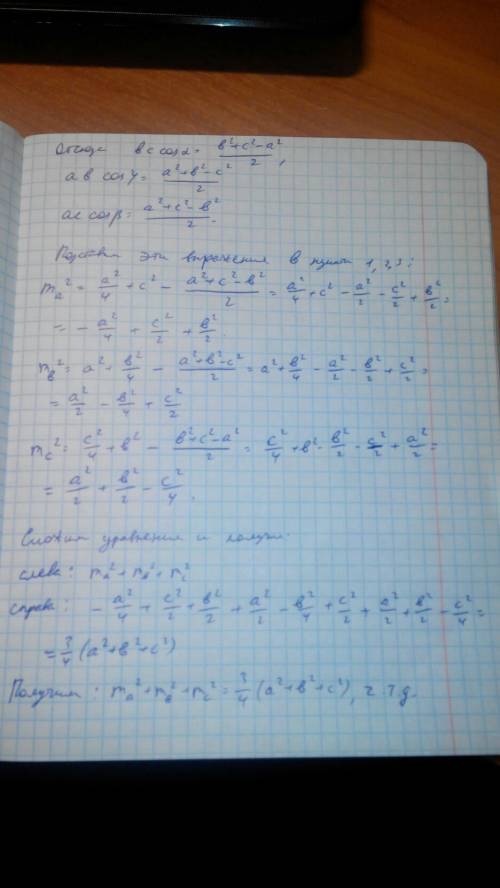 Отсюда bc cosα = (b²+c²-a²)/2,
ab cosγ = (a²+b²-c²)/2
ac cosβ = (a²+c²-b²)/2.
Подставим эти выражения в пункты 1, 2, 3:
mₐ² = a²/4 + c² - (a²+c²-b²)/2 = a²/4 + c² - a²/2 - c²/2 + b²/2 =
= -a²/4 + c²/2 + b²/2.
m_b² = a² + b²/4 - (a²+b²-c²)/2 = a² + b²/4 - a²/2 - b²/2 + c²/2 =
= a²/2 - b²/4 + c²/2
m_c² = c²/4 + b² - (b²+c²-a²)/2 = c²/4 + b² - b²/2 - c²/2 + a²/2 =
= a²/2 + b²/2 - c²/4.
Сложим уравнения и получим:
слева: mₐ² + m_b² + m_c²
справа: -a²/4 + c²/2 + b²/2 + a²/2 - b²/4 + c²/2 + a²/2 + b²/2 - c²/4 =
= 3/4 (a²+b²+c²)
Получим: mₐ² + m_b² + m_c² = 3/4 (a²+b²+c²), ч.т.д.